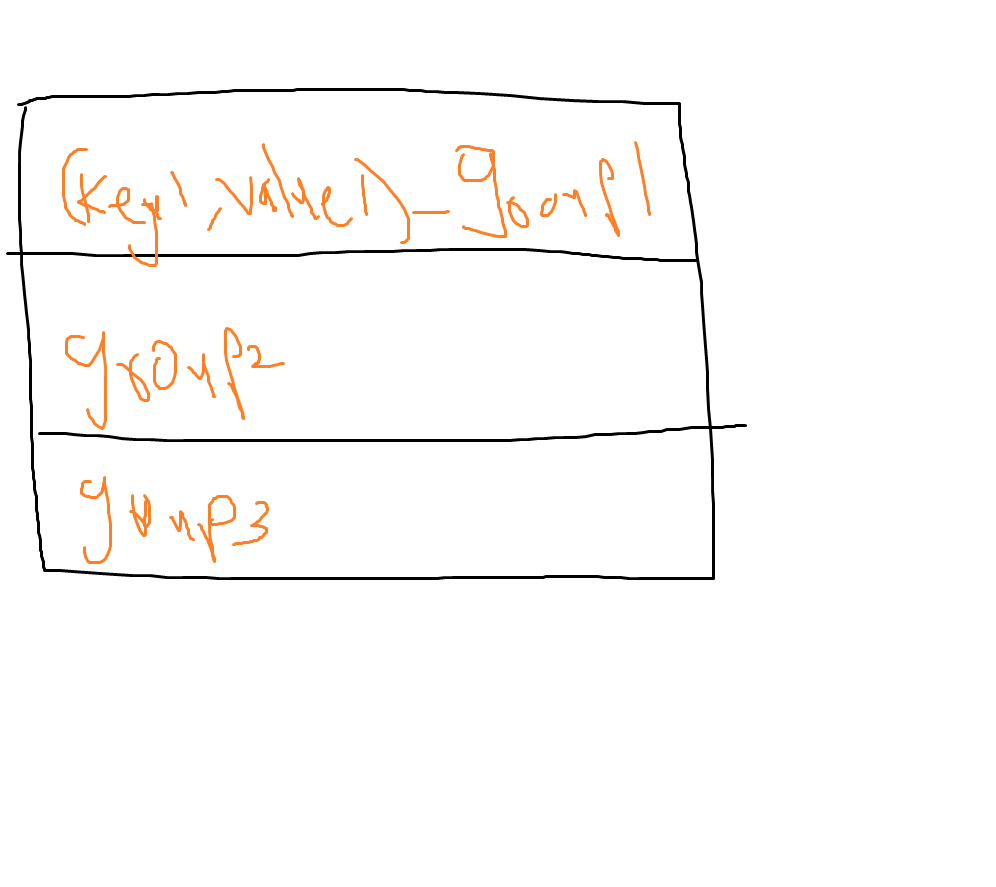 (key1, value1) - group1
group2
group3